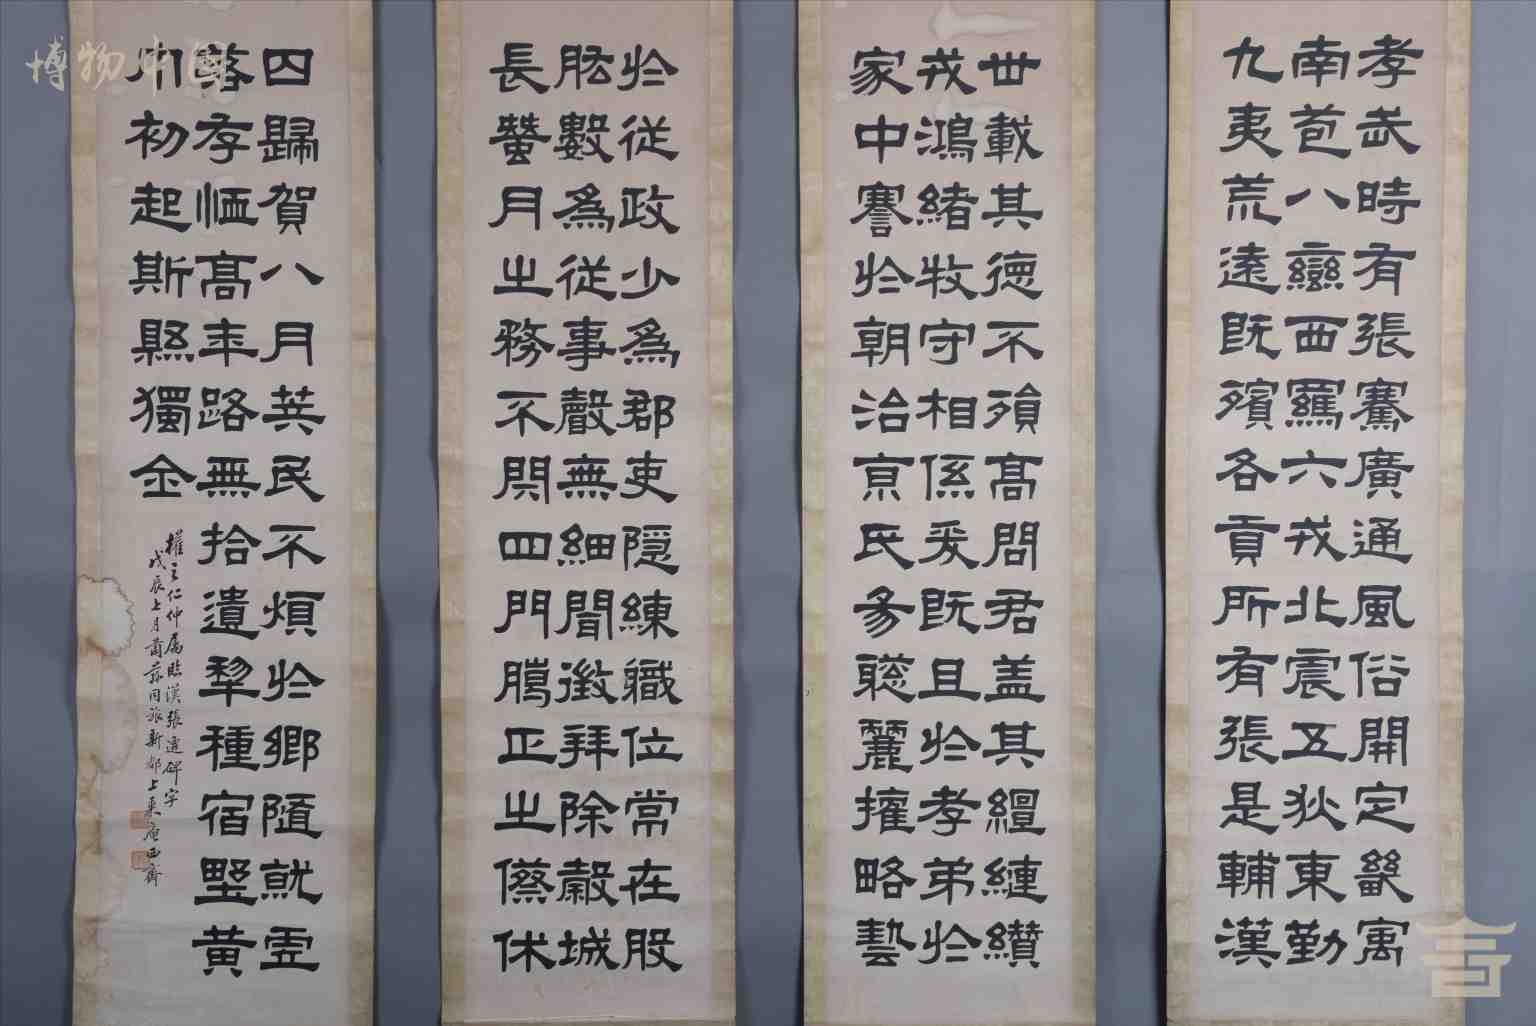 孝武時有張騫廣通風俗開定畿㝢
南苞八蠻西羈六戎北震五狄東勤
九夷荒遠既殯各貢所有張是輔漢
世載其德不殞高問君盖其繵縺纘
戎鴻緒牧守相係爰既且於孝弟於
家中謇於朝治京氏易聦麗權略藝
於從政少為郡吏隱練職位常在股
肱數為從事聲無細聞徵拜除穀城
長蠶月之務不閉四門臘正之僚休
四歸賀八月筭民不煩於鄉隨就虛
落存恤高年路無拾遺犂種宿野黃
巾初起斯縣獨全
權之仁仲屬臨漢張遷碑字
戊辰七月蕭蓀同旅新都上東同西齋
博物中国